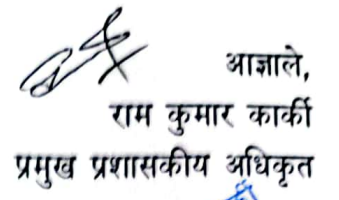 आज्ञाले,
राम कुमार कार्की
प्रमुख प्रशासकीय अधिकृत